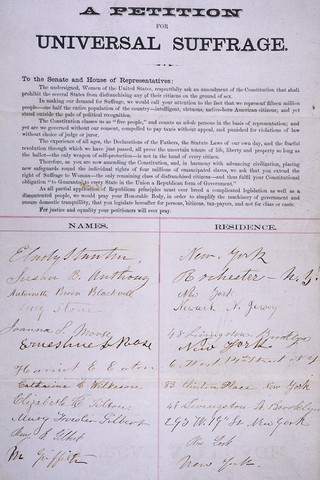 A PETITION
FOR
UNIVERSAL SUFFRAGE.
To the Senate and House of Representatives:
The undersigned, Women of the United States, respectfully ask an amendment of the Constitution that shall
prohibit the several States from disfranchising any of their citizens on the ground of sex.
In making our demand for Suffrage, we would call your attention to the fact that we represent fifteen million
people—one half the entire population of the country—intelligent, virtuous, native-born American citizens; and yet
stand outside the pale of political recognition.
The Constitution classes us as "free people," and counts us whole persons in the basis of representation; and yet
are we governed without our consent, compelled to pay taxes without appeal, and punished for violations of law
without choice of judge or juror.
The experience of all ages, the Declarations of the Fathers, the Statute Laws of our own day, and the fearful
revolution through which we have just passed, all prove the uncertain tenure of life, liberty and property so long as
the ballot—the only weapon of self-protection—is not in the hand of every citizen.
Therefore, as you are now amending the Constitution, and, in harmony with advancing civilization, placing
new safeguards round the individual rights of four millions of emancipated slaves, we ask that you extend the
right of Suffrage to Woman—the only remaining class of disfranchised citizens—and thus fulfil your Constitutional
obligation "to Guarantee to every State in the Union a Republican form of Government."
As all partial application of Republican principles must ever breed a complicated legislation as well as a
discontented people, we would pray your Honorable Body, in order to simplify the machinery of government and
ensure domestic tranquillity, that you legislate hereafter for persons, citizens, tax-payers, and not for class or caste.
For justice and equality your petitioners will ever pray.
NAMES. RESIDENCE.
E. Cady Stanton New York
Susan B. Anthony Rochester - N.Y.
Antoinette Brown Blackwell New York
Lucy Stone Newark N. Jersey
Joanna S. Morse 48 Livingston Brooklyn
Ernestine L. Rose New York
Harriet E. Eaton 6 West 14th Street N.Y
Catharine C. Wilkeson 83 Clinton Place New York
Elizabeth R. Tilton 48 Livingston St Brooklyn
Mary Fowler Gilbert 293 W. 19th St New York
Gilbert New York
M Griffith New York.